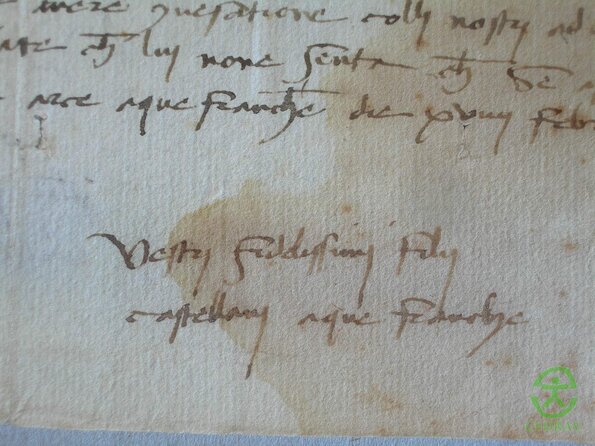 avere questione colli nostri ad
che lui none senta che se
arce aque franche die xviiii febr
Vestri fidelissimi filii
castellani aque franche